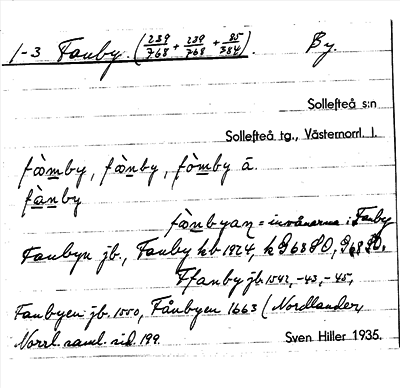 1-3 Fanby. (239/768 + 239/768 + 85/384). By.
Sollefteå s:n
Sollefteå tg., Västernorrl. l.
fòmby, fànby, fòmby ā.
fànby
fànbyan = invånarna i Fanby
Fanbyn jb., Fanby kb 1924, k G68SO, G68SO.
Ffanby jb 1542, -43, -45,
Fanbyen jb. 1550, Fånbyen 1663 (Nordlander,
Norrl. saml. sid. 199.
Sven Hiller 1935.